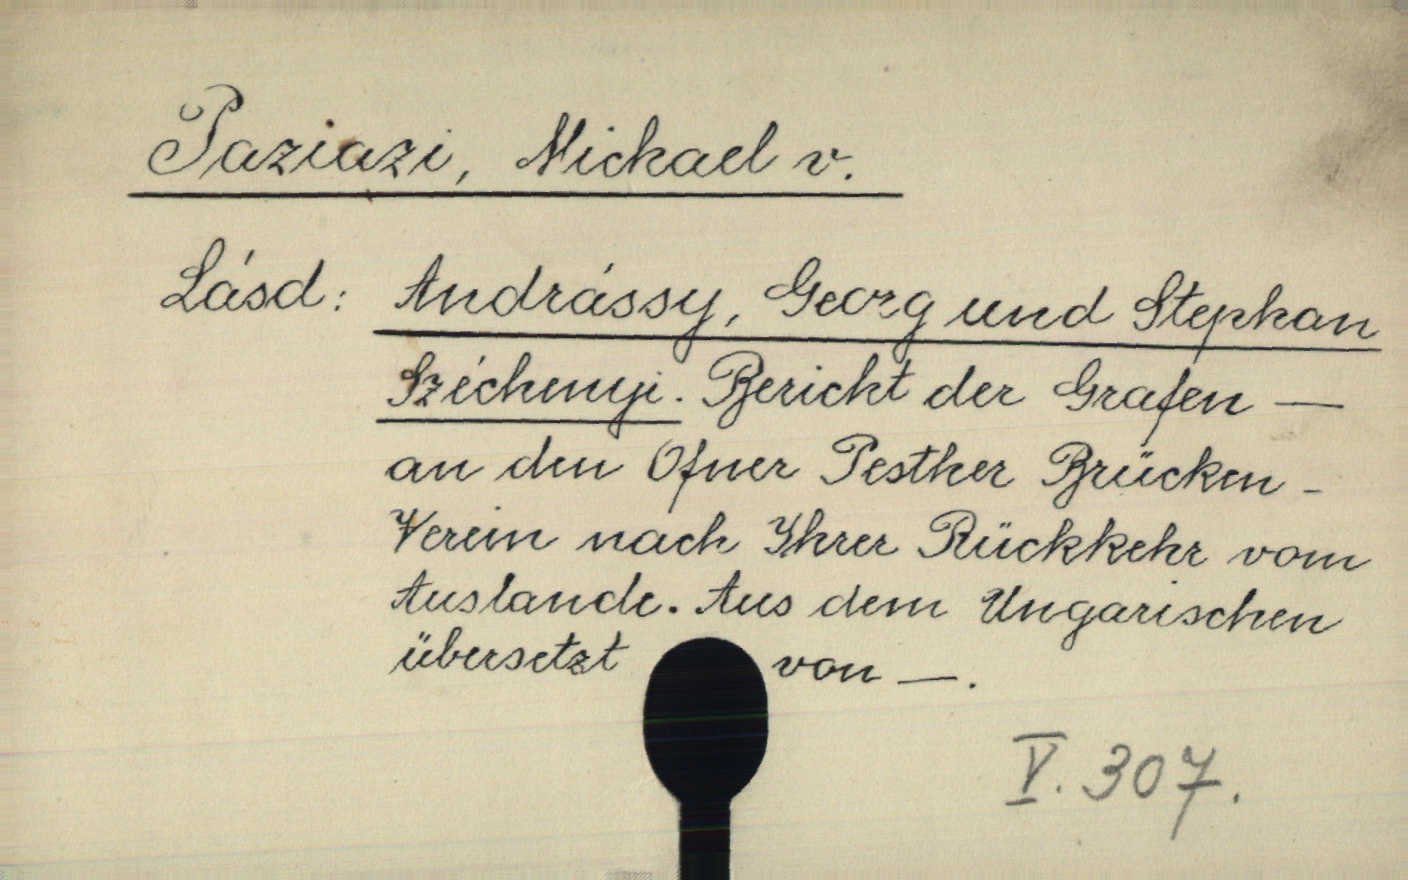 Paziazi, Michael v.
Lásd: Andrássy, Georg und Stephan
Széchenyi. Bericht der Grafen —
an den Ofner Pesther Brücken-
Verein nach Ihrer Rückkehr vom
Auslande. Aus dem Ungarischen
übersetzt von —.
V. 307.